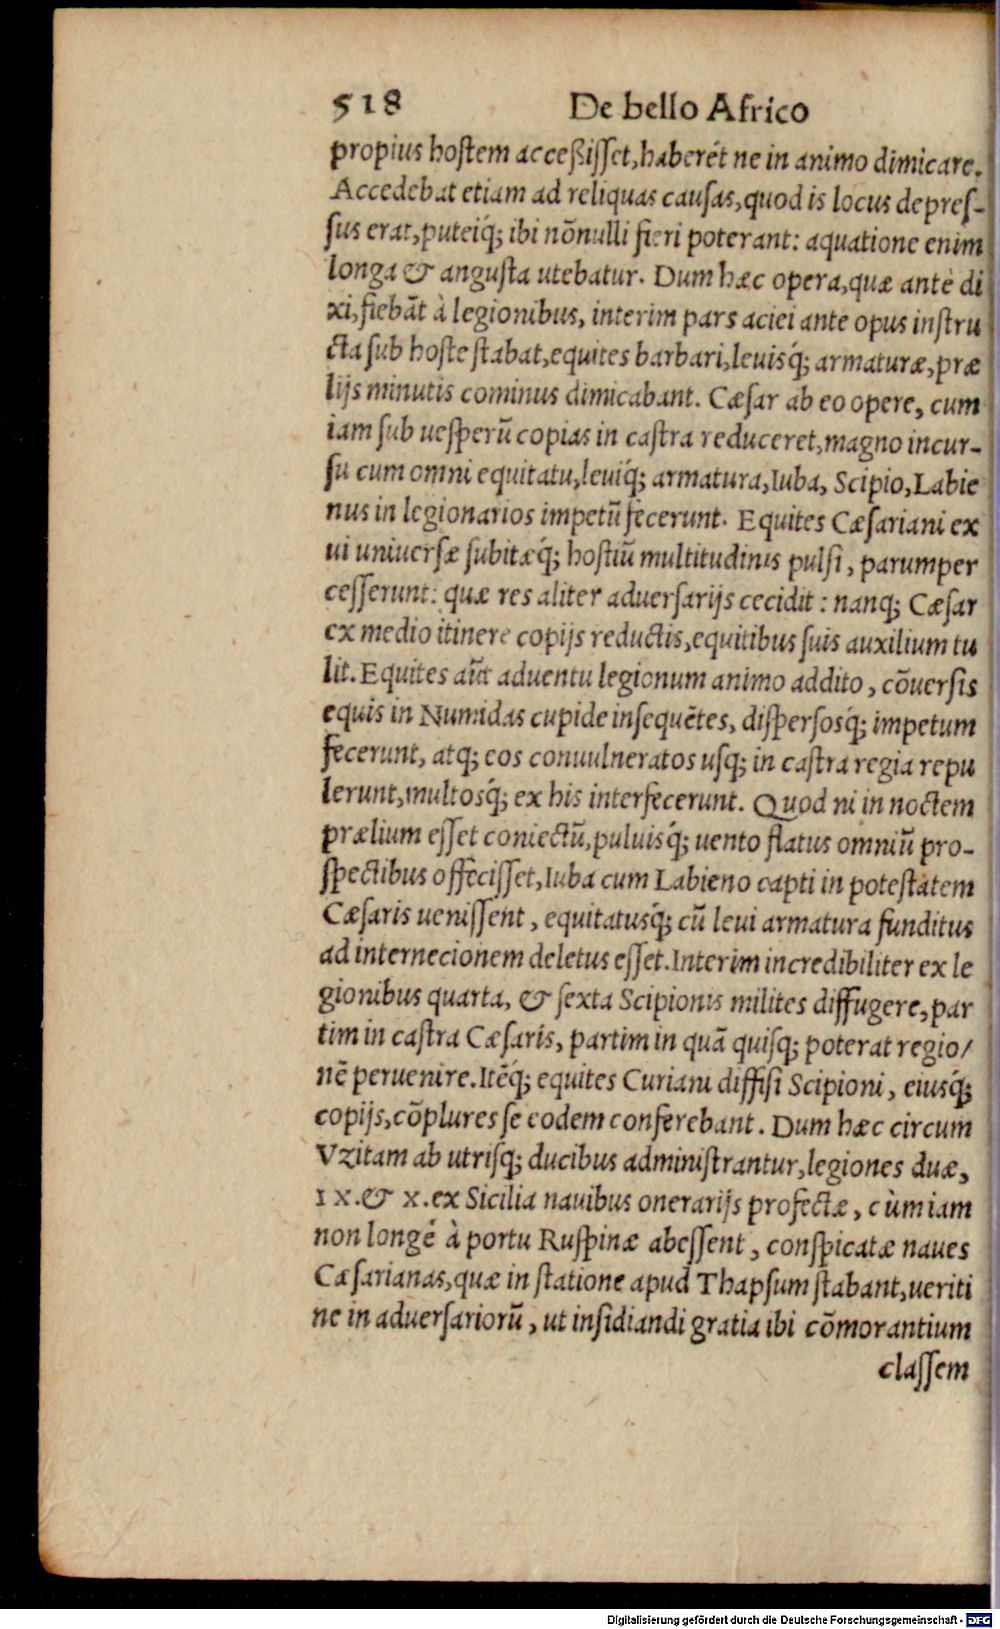 518 De bello Africo
propius hostem acceßisset, haberét ne in animo dimicare.
Accedebat etiam ad reliquas causas, quod is locus depres-
sus erat, puteiq́; ibi nõnulli fieri poterant: aquatione enim
longa & angusta utebatur. Dum hæc opera, quæ antè di
xi, fiebãt à legionibus, interim pars aciei ante opus instru
cta sub hoste stabat, equites barbari, leuisq́; armaturæ, præ
lijs minutis cominus dimicabant. Cæsar ab eo opere, cum
iam sub uesperũ copias in castra reduceret, magno incur-
su cum omni equitatu, leuiq́; armatura, Iuba, Scipio, Labie
nus in legionarios impetũ fecerunt. Equites Cæsariani ex
ui uniuersæ subitæq́; hostiũ multitudinis pulsi, parumper
cesserunt: quæ res aliter aduersarijs cecidit: nanq; Cæsar
ex medio itinere copijs reductis, equitibus suis auxilium tu
lit. Equites aũt aduentu legionum animo addito, cõuersis
equis in Numidas cupide insequẽtes, dispersosq́; impetum
fecerunt, atq; eos conuulneratos usq; in castra regia repu
lerunt, multosq́; ex his interfecerunt. Quod ni in noctem
prælium esset coniectũ, puluisq́; uento flatus omniũ pro-
spectibus offecisset, Iuba cum Labieno capti in potestatem
Cæsaris uenissent, equitatusq́; cũ leui armatura funditus
ad internecionem deletus esset. Interim incredibiliter ex le
gionibus quarta, & sexta Scipionis milites diffugere, par
tim in castra Cæsaris, partim in quã quisq; poterat regio/
nẽ peruenire. Itẽq́; equites Curiani diffisi Scipioni, eiusq́;
copijs, cõplures se eodem conferebant. Dum hæc circum
Vzitam ab utrisq; ducibus administrantur, legiones duæ,
IX. & X. ex Sicilia nauibus onerarijs profectæ, cùm iam
non longé à portu Ruspinæ abessent, conspicatæ naues
Cæsarianas, quæ in statione apud Thapsum stabant, ueriti
ne in aduersariorũ, ut insidiandi gratia ibi cõmorantium
classem
Digitalisierung gefördert durch die Deutsche Forschungsgemeinschaft - DFG